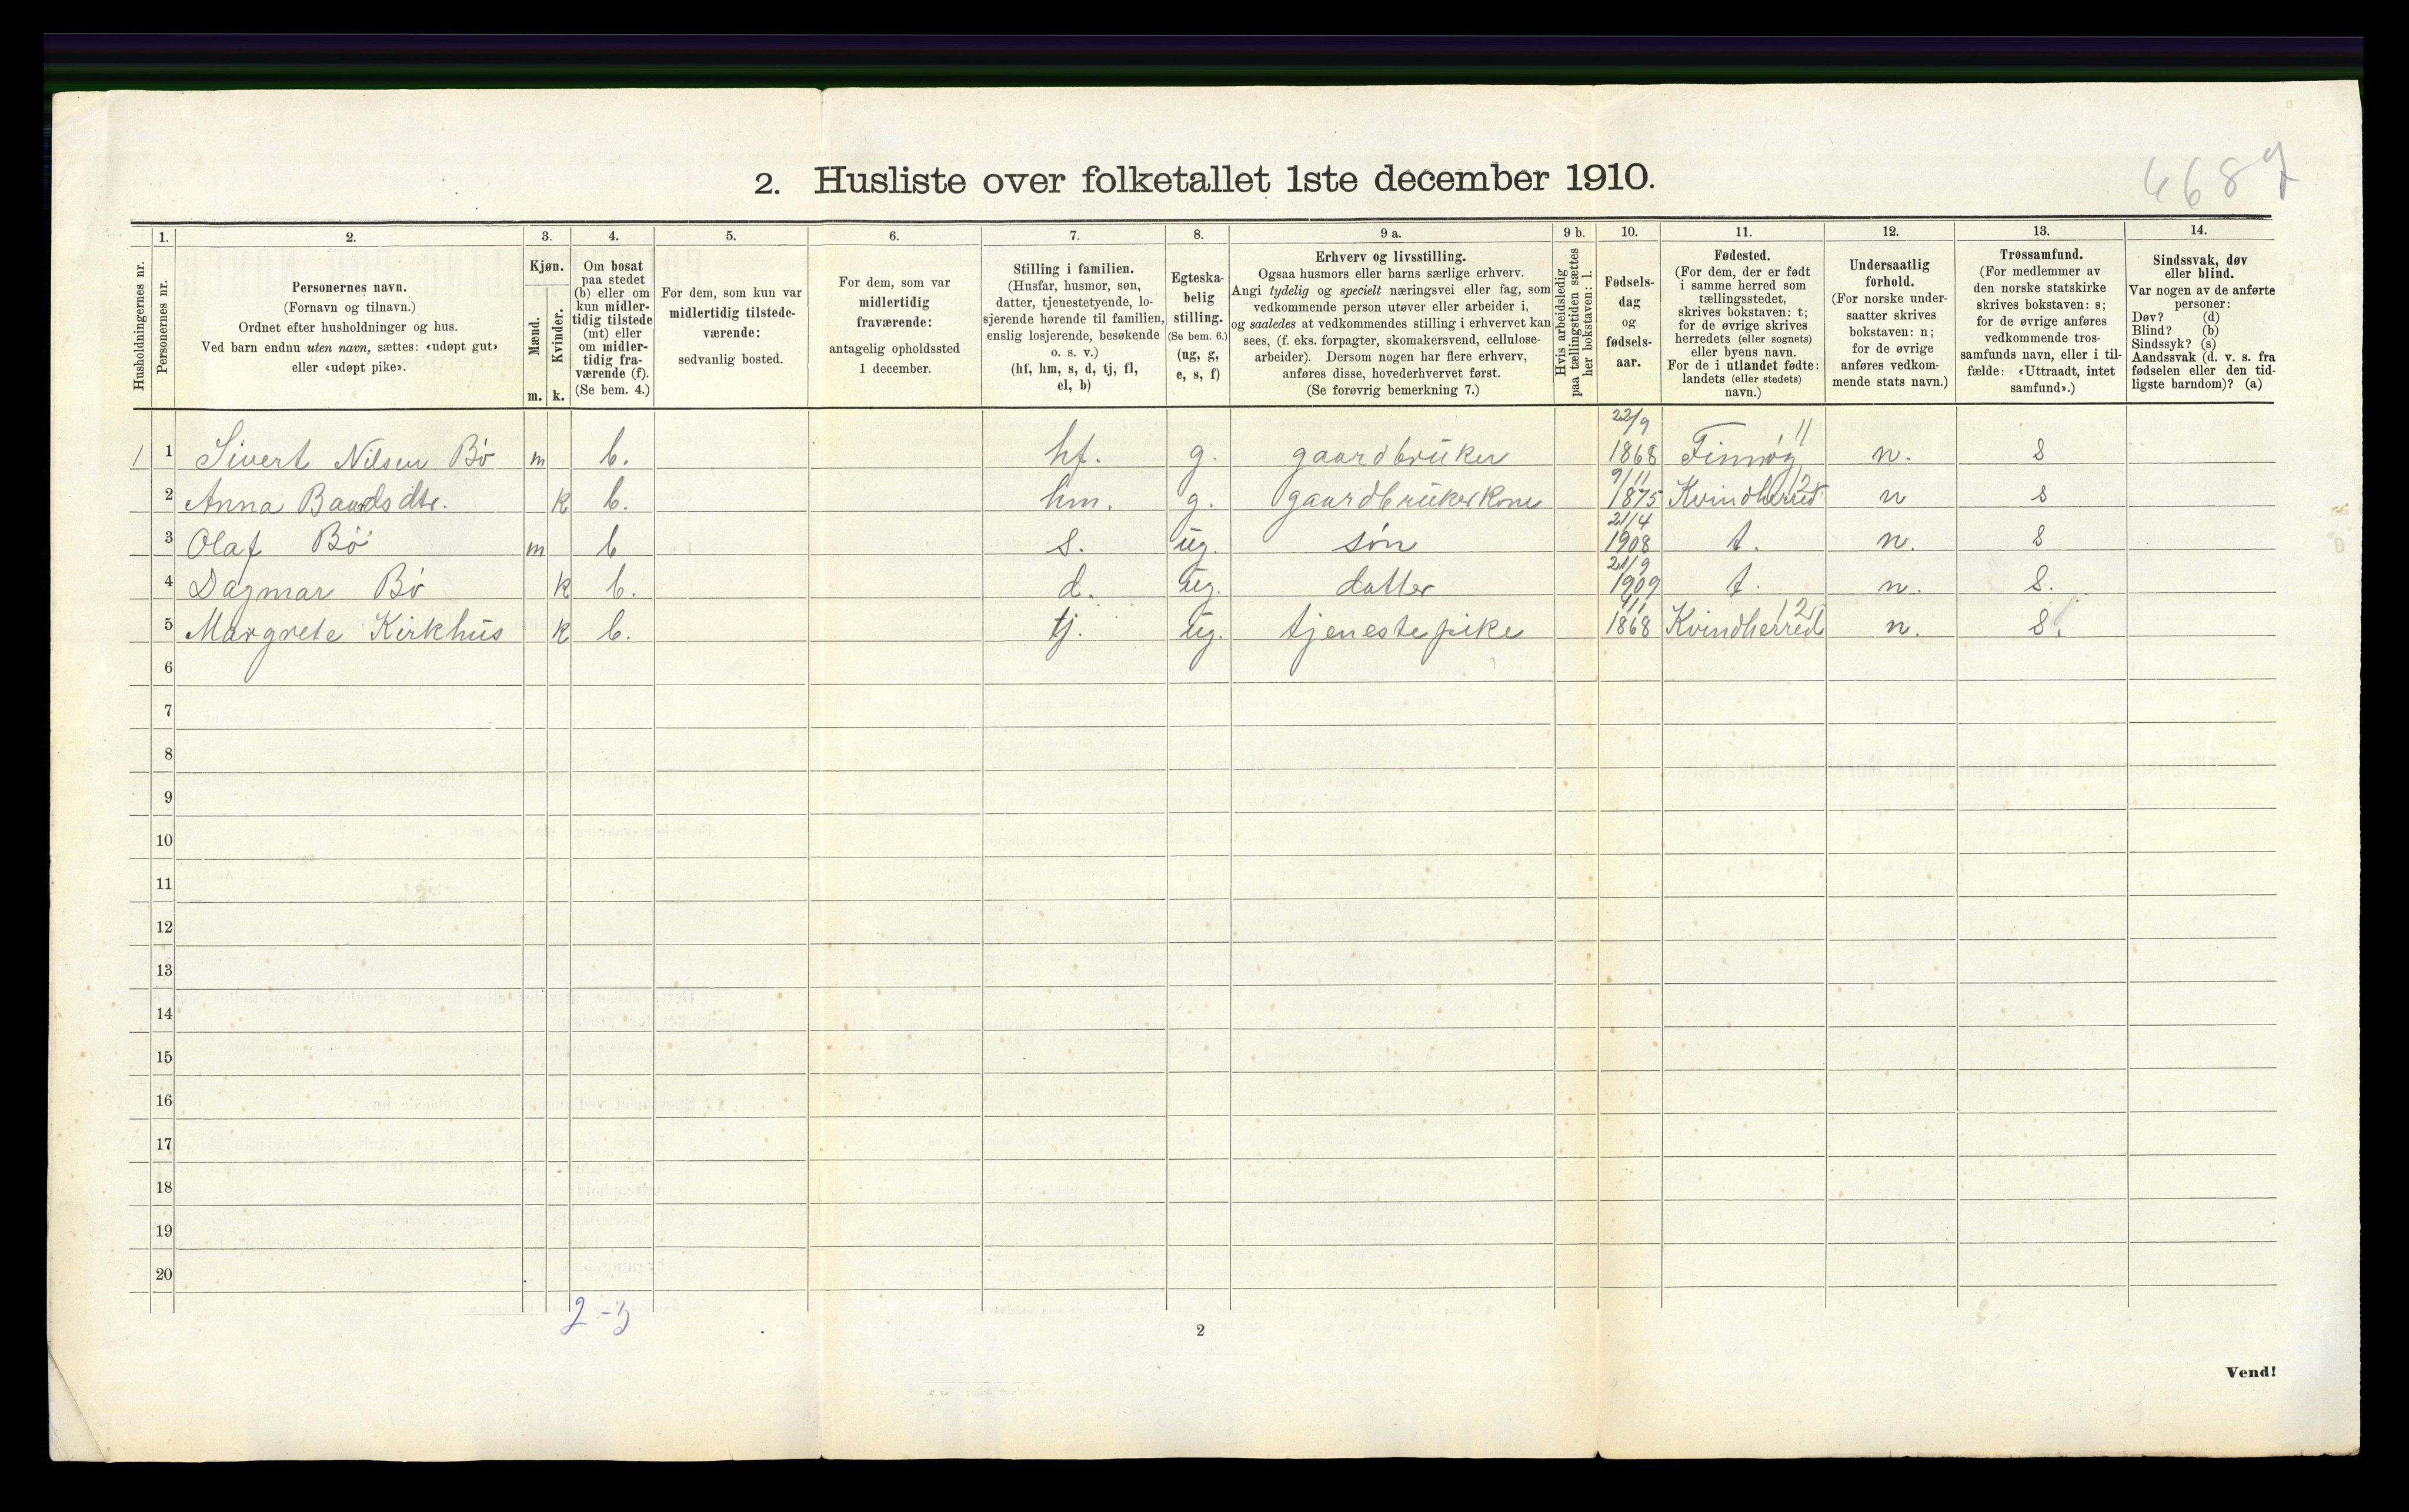 2. Husliste over folketallet 1ste december 1910.
4687
Husholdningernes nr.
1.
Personernes nr.
2.
Personernes navn.
(Fornavn og tilnavn.)
Ordnet efter husholdninger og hus.
Ved barn endnu uten navn, sættes: «udøpt gut»
eller «udøpt pike».
3.
Kjøn.
Mænd.
Kvinder.
m. k.
4.
Om bosat
paa stedet
(b) eller om
kun midler-
tidig tilstede
(mt) eller
om midler-
tidig fra-
værende (f).
(Se bem. 4.)
5.
For dem, som kun var
midlertidig tilstede-
værende:
sedvanlig bosted.
6.
For dem, som var
midlertidig
fraværende:
antagelig opholdssted
1 december.
7.
Stilling i familien.
(Husfar, husmor, søn,
datter, tjenestetyende, lo-
sjerende hørende til familien,
enslig losjerende, besøkende
o. s. v.)
(hf, hm, s, d, tj, fl,
el, b)
8.
Egteska-
belig
stilling.
(Se bem. 6.)
(ug, g,
e, s, f)
9 a.
Erhverv og livsstilling.
Ogsaa husmors eller barns særlige erhverv.
Angi tydelig og specielt næringsvei eller fag, som
vedkommende person utøver eller arbeider i,
og saaledes at vedkommendes stilling i erhvervet kan
sees, (f. eks. forpagter, skomakersvend, cellulose-
arbeider). Dersom nogen har flere erhverv,
anføres disse, hovederhvervet først.
(Se forøvrig bemerkning 7.)
9 b.
Hvis arbeidsledig
paa tællingstiden sættes
her bokstaven: l.
10.
Fødsels-
dag
og
fødsels-
aar.
11.
Fødested.
(For dem, der er født
i samme herred som
tællingsstedet,
skrives bokstaven: t;
for de øvrige skrives
herredets (eller sognets)
eller byens navn.
For de i utlandet fødte:
landets (eller stedets)
navn.)
12.
Undersaatlig
forhold.
(For norske under-
saatter skrives
bokstaven: n;
for de øvrige
anføres vedkom-
mende stats navn.)
13.
Trossamfund.
(For medlemmer av
den norske statskirke
skrives bokstaven: s;
for de øvrige anføres
vedkommende tros-
samfunds navn, eller i til-
fælde: «Uttraadt, intet
samfund».)
14.
Sindssvak, døv
eller blind.
Var nogen av de anførte
personer:
Døv? (d)
Blind? (b)
Sindssyk? (s)
Aandssvak (d. v. s. fra
fødselen eller den tid-
ligste barndom)? (a)
1 1 Sivert Nilsen Bø m b. hf. g. gaardbruker 22/9 1868 Finnøy 11 n. s
2 Anna Baardsdtr. k b. hm. g. gaardbrukerkone 9/11 1875 Kvindherred 12 n s
3 Olaf Bø m b s. ug. søn 21/4 1908 t. n. s
4 Dagmar Bø k b. d. ug. datter 21/9 1909 t. n. s.
5 Margrete Kirkhus k b. tj. ug. tjenestepike 4/1 1868 Kvindherred 12 n. s.
6
7
8
9
10
11
12
13
14
15
16
17
18
19
20
2-3
2
Vend!